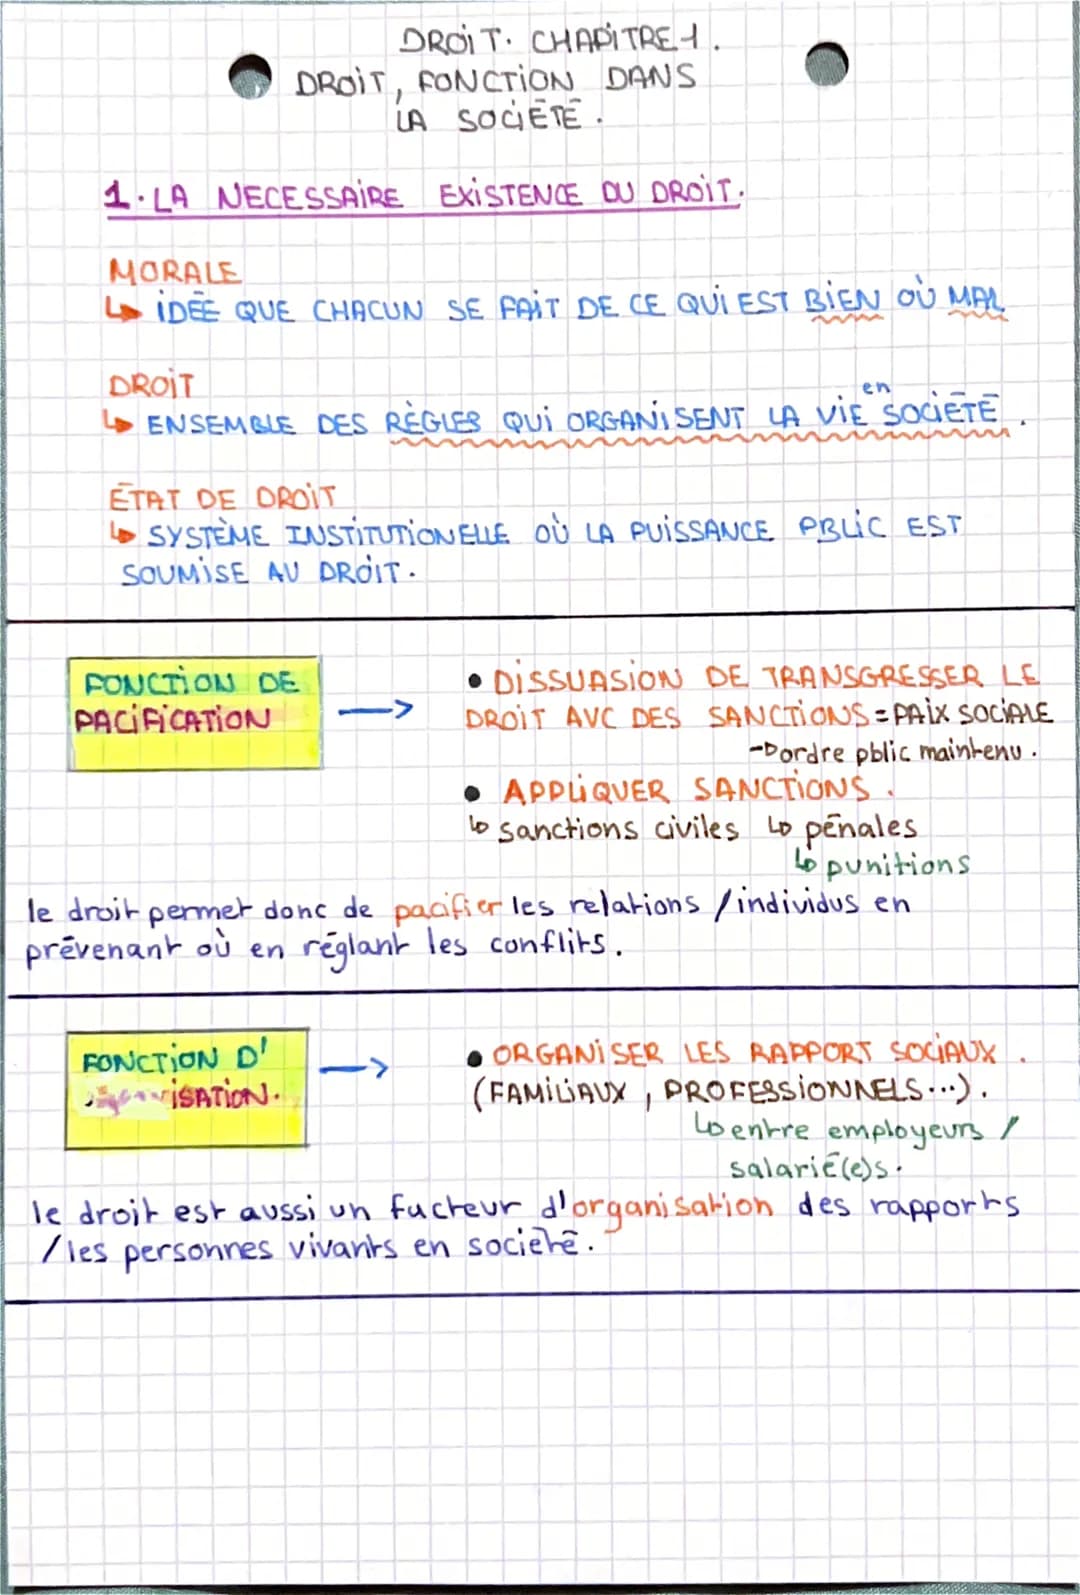 DROIT. CHAPITRE 1.
DROIT, FONCTION DANS
LA SOCIÉTÉ.
1. LA NECESSAIRE EXISTENCE DU DROIT.
MORALE
↳ IDÉE QUE CHACUN SE FAIT DE CE QUI EST BIEN OÙ MAL
DROIT
↳ ENSEMBLE DES RÈGLES QUI ORGANISENT LA VIE en SOCIÉTÉ.
ÉTAT DE DROIT
↳ SYSTÈME INSTITUTIONELLE OÙ LA PUISSANCE PBLIC EST
SOUMISE AU DROIT.
FONCTION DE
PACIFICATION
→
• DISSUASION DE TRANSGRESSER LE
DROIT AVC DES SANCTIONS = PAIX SOCIALE
→ ordre pblic maintenu.
• APPLIQUER SANCTIONS.
↳ sanctions civiles ↳ pénales
↳ punitions
le droit permet donc de pacifier les relations / individus en
prévenant où en réglant les conflits.
FONCTION D'
→
• ORGANISER LES RAPPORT SOCIAUX.
(FAMILIAUX, PROFESSIONNELS...).
↳ entre employeurs /
salarié(e)s.
le droit est aussi un facteur d'organisation des rapports
/ les personnes vivants en société.